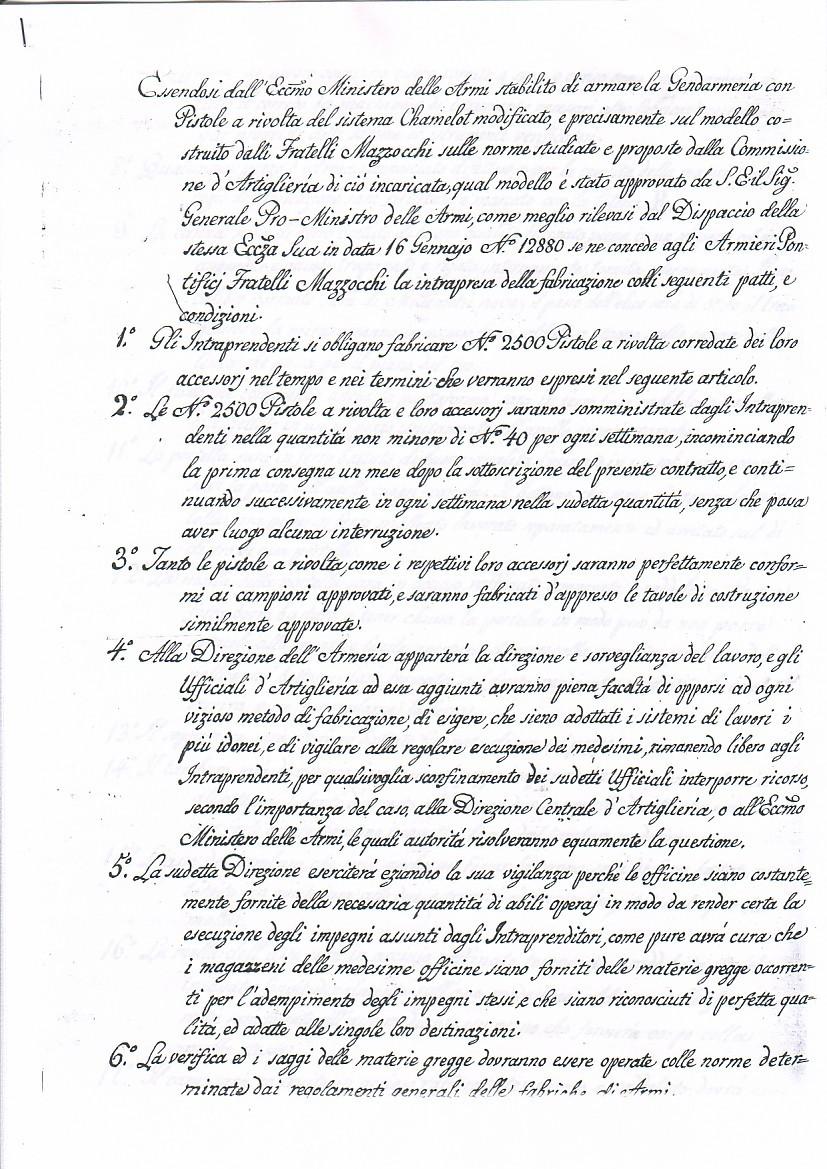 Essendosi dall'Eccmo Ministero delle Armi stabilito di armare la Gendarmeria con
Pistole a rivolta del sistema Chamelot modificato, e precisamente sul modello co=
struito dalli Fratelli Mazzocchi sulle norme studiate e proposte dalla Commissio=
ne d'Artiglieria di ció incaricata, qual modello é stato approvato da S. E. il Sig.
Generale Pro-Ministro delle Armi, come meglio rilevasi dal Dispaccio della
stessa Eccza Sua in data 16 Gennajo N.º 12880 se ne concede agli Armieri Pon=
tificj Fratelli Mazzocchi la intrapresa della fabricazione colli seguenti patti, e
condizioni.
1.º Gli Intraprendenti si obligano fabricare N.º 2500 Pistole a rivolta corredate dei loro
accessorj nel tempo e nei termini che verranno espressi nel seguente articolo.
2.º Le N.º 2500 Pistole a rivolta e loro accessorj saranno somministrate dagli Intrapren=
denti nella quantitá non minore di N.º 40 per ogni settimana, incominciando
la prima consegna un mese dopo la sottoscrizione del presente contratto, e conti=
nuando successivamente in ogni settimana nella sudetta quantitá, senza che possa
aver luogo alcuna interruzione.
3.º Tanto le pistole a rivolta, come i respettivi loro accessorj saranno perfettamente confor=
mi ai campioni approvati, e saranno fabricati d'appresso le tavole di costruzione
similmente approvate.
4.º Alla Direzione dell'Armeria apparterá la direzione e sorveglianza del lavoro, e gli
Ufficiali d'Artiglieria ad essa aggiunti avranno piena facoltá di opporsi ad ogni
vizioso metodo di fabricazione, di esigere, che sieno adottati i sistemi di lavori i
piú idonei, e di vigilare alla regolare esecuzione dei medesimi, rimanendo libero agli
Intraprendenti, per qualsivoglia sconfinamento dei sudetti Ufficiali interporre ricorso,
secondo l'importanza del caso, alla Direzione Centrale d'Artiglieria, o all'Eccmo
Ministero delle Armi, le quali autoritá risolveranno equamente la questione.
5.º La sudetta Direzione eserciterá eziandio la sua vigilanza perché le officine siano costante=
mente fornite della necessaria quantitá di abili operaj in modo da render certa la
esecuzione degli impegni assunti dagli Intraprenditori, come pure avrá cura che
i magazzeni delle medesime officine siano forniti delle materie gregge occorren=
ti per l'adempimento degli impegni stessi, e che siano riconosciuti di perfetta qua=
litá, ed adatte alle singole loro destinazioni.
6.º La verifica ed i saggi delle materie gregge dovranno essere operate colle norme deter=
minate dai regolamenti generali delle fabriche di Armi.